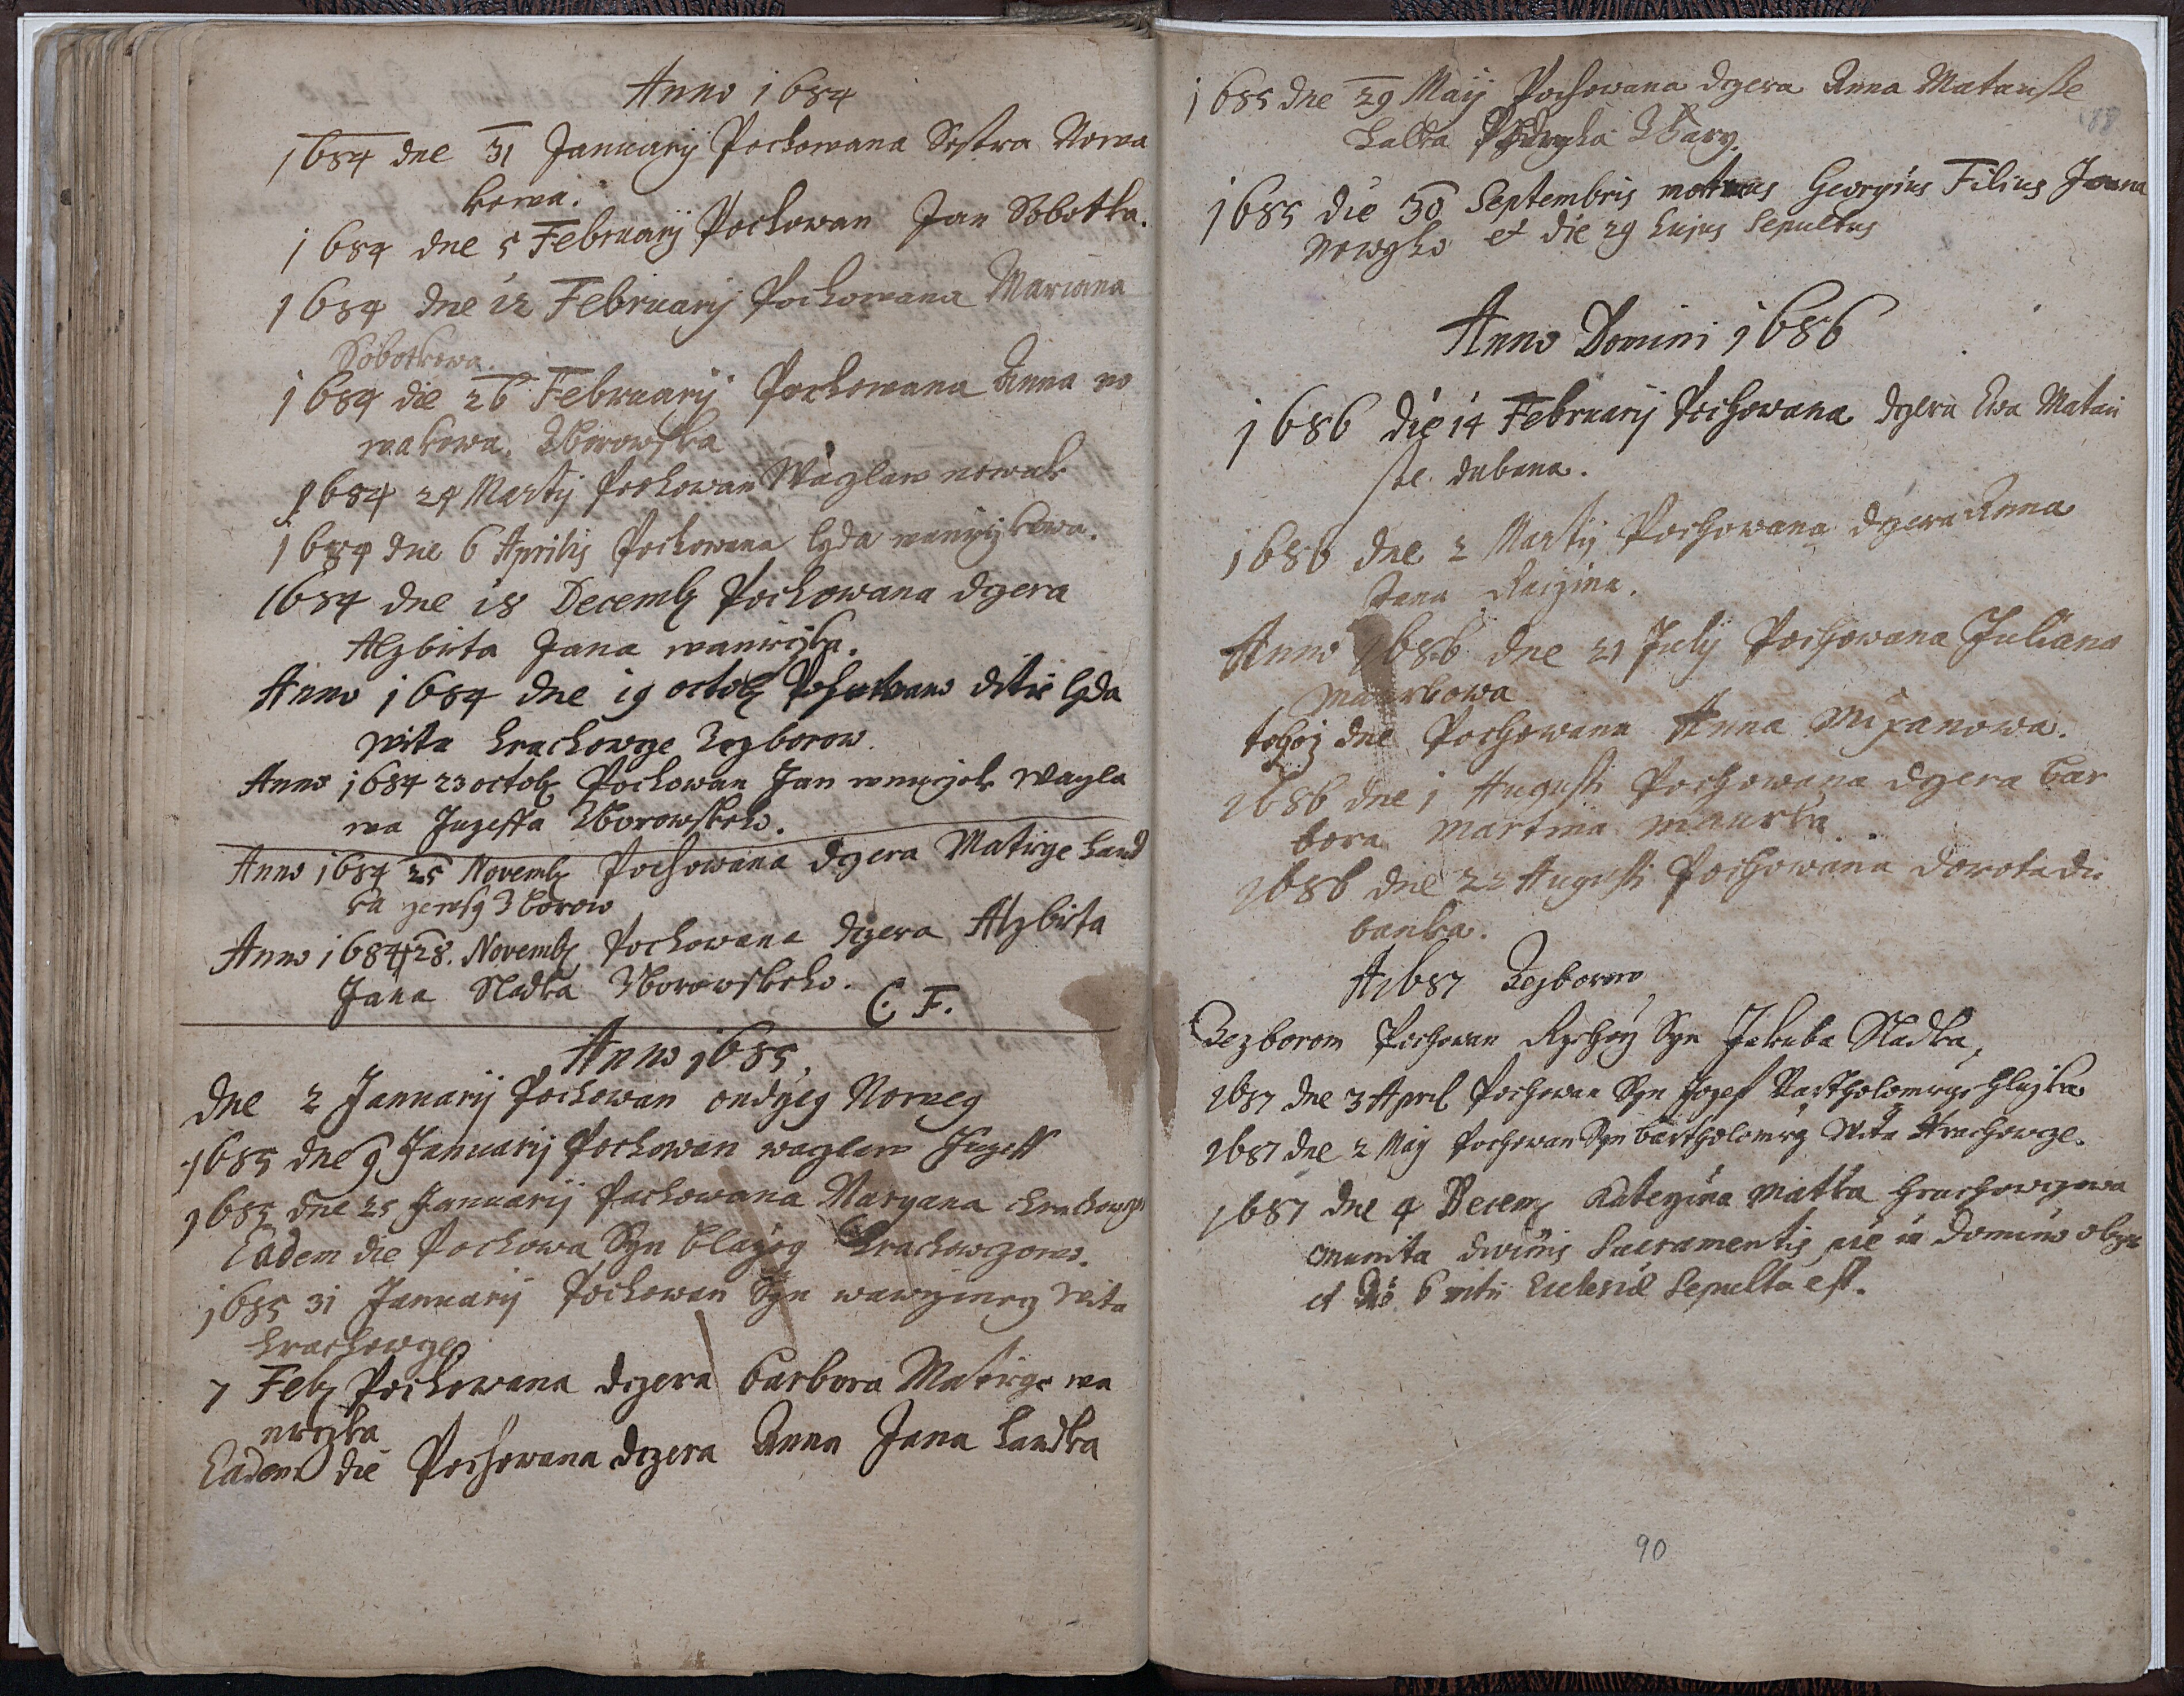 Anno 1684
1684 dne 31 Januarij Pochowana Sestra Nowa
kowa.
1684 dne 5 Februarij Pochowan Jan Sobotka.
1684 dne 12 Februarij Pochowana Mariana
Sobotkowa.
1684 die 26 Februarij Pochowana Anna no
wakowa. Zborowska
1684 24 Martij Pochowan Waglaw nowak
1684 dne 6 Aprilis Pochowana lyda
1684 dne 18 Decemb Pochowana dczera
Alzbieta Jana
Anno 1684 dne 19 octob Pochowano ditie lyda
wita hrachowcze Zezborow.
Anno 1684 23 octob Pochowan Jan Wagla
wa Juzeffa Zborowskeho.
Anno 1684 25 Novemb Pochowana dczera Matiege Land
ka Zborow
Anno 1684 28. Novemb Pochowana dczera Alzbieta
Jana Sladka Zborowskeho.
C. F.
Anno 1685.
dne 2 Januarij Pochowan ondrzeg
1685 dne 9 Januarij Pochowan waglaw Juzeff
1685 dne 25 Januarij Pochowana Maryana
Eadem die Pochowa Syn blazeg hrachowczow.
1685 31 Januarij Pochowan Syn wawrzineg wita
hrachowcze
7 Feb Pochowana dczera barbora Matiege wa
Eadem die Pochowana dczera Anna Jana Landka
1685 dne 29 Maij Pochowana dczera Anna Matausse
88
1685 die 30 Septembris Georgius Filius Joana
et die 29 hujus Sepultus
Anno Domini 1686
1686 die 14 Februarij Pochowana dczera Ewa Matau
sse dubana.
1686 dne 2 Martij Pochowana dczera Anna
Jana
Anno 1686 dne 21 Julij Pochowana Juliana
Maurkowa
tehoz dne Pochowana Anna
1686 dne 1 Augusti Pochowana dczera bar
bora Martina maurka.
1686 dne 22 Augusti Pochowana dorota du
banka.
A 1687 Zezborow
Zezborow Pochowan Syn Jakuba Sladka,
1687 dne 3 April Pochowan Syn Jozef Bartholomege
1687 dne 2 Maij Pochowan Syn bartholomeg Wita Hrachowcze.
1687 dne 4 Decem Katerzina Matka hrachowczowa
munita divinis Sacramentis pie in Domino
et die 6 Ecclesiae Sepulta est.
90